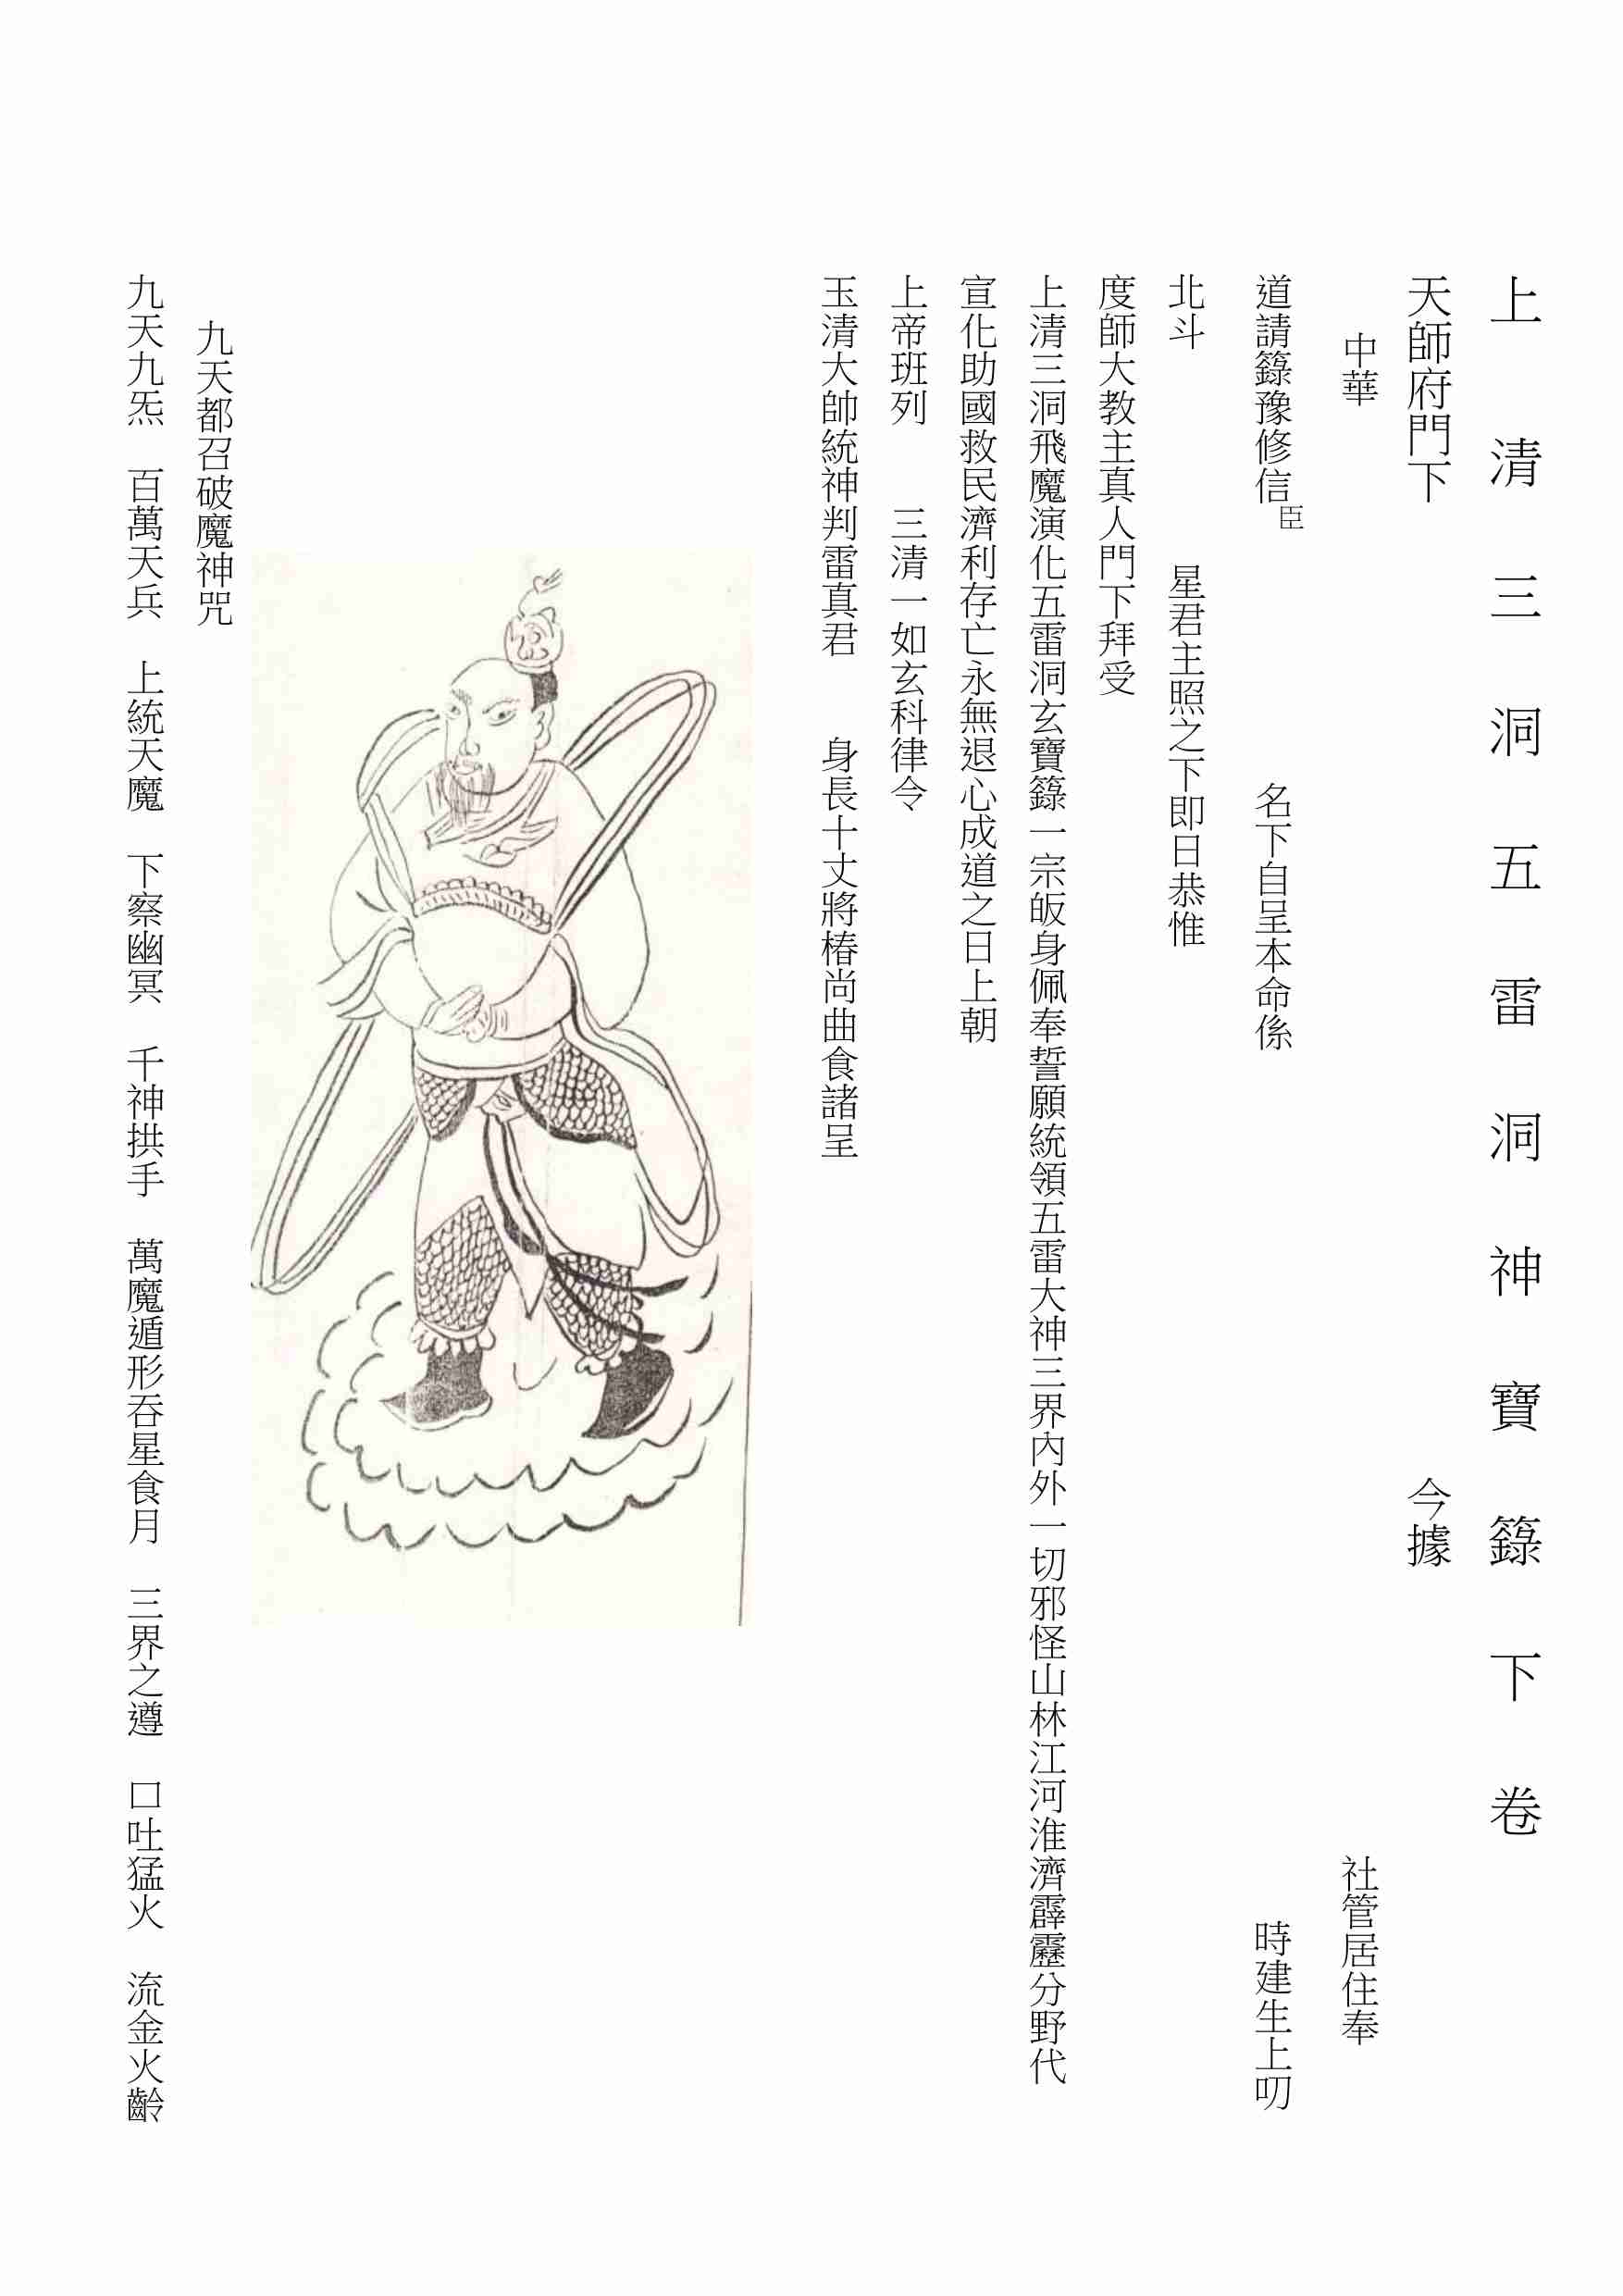 上清三洞五雷洞神寶籙下卷
天師府門下 今據
中華 社管居住奉
道請籙豫修信臣 名下自呈本命係 時建生上叨
北斗 星君主照之下即日恭惟
度師大教主真人門下拜受
上清三洞飛魔演化五雷洞玄寶籙一宗皈身佩奉誓願統領五雷大神三界內外一切邪怪山林江河淮濟霹靂分野代
宣化助國救民濟利存亡永無退心成道之日上朝
上帝班列 三清一如玄科律令
玉清大帥統神判雷真君 身長十丈將椿尚曲食諸呈
九天都召破魔神咒
九天九炁 百萬天兵 上統天魔 下察幽冥 千神拱手 萬魔遁形吞星食月 三界之遵 口吐猛火 流金火齡